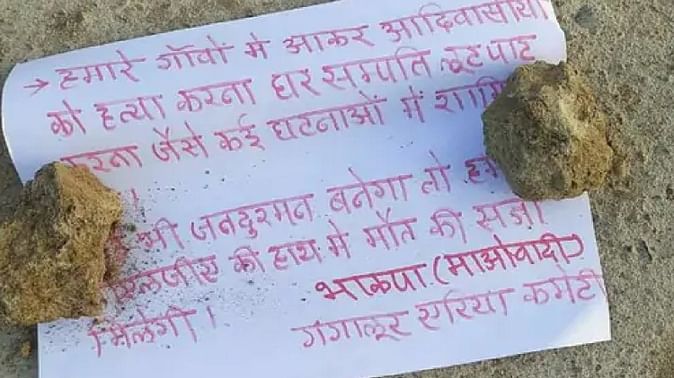 → हमारे गाँवों मे आकर आदिवासीयों
को हत्या करना घर सम्पति लूटपाट
करना जैसे कई घटनाओं में
भी जनदुश्मन बनेगा तो
की हाथ मे मौत की सजा
मिलेगी।
भाकपा (माओवादी)
गंगालूर एरिया कमेटी